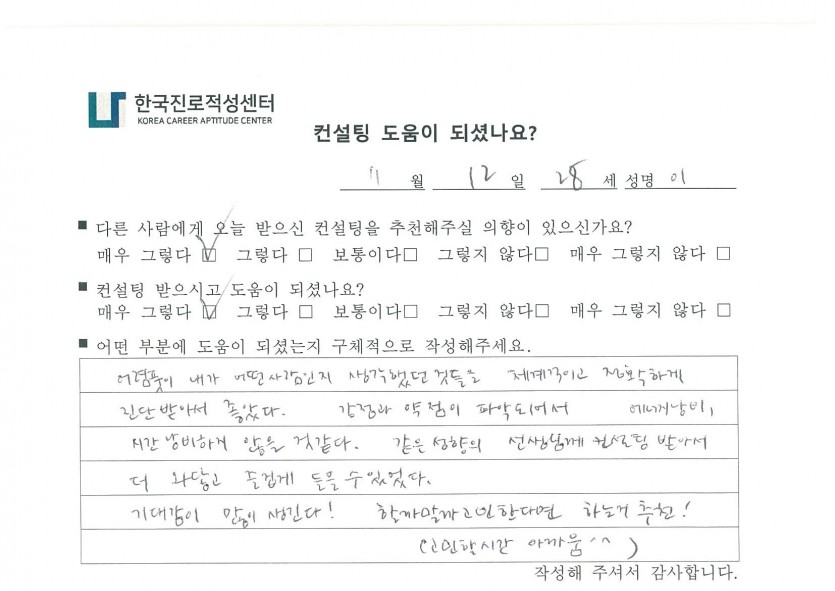 한국진로적성센터
KOREA CAREER APTITUDE CENTER
컨설팅 도움이 되셨나요?
11 월 12 일 28 세 성명 이
■ 다른 사람에게 오늘 받으신 컨설팅을 추천해주실 의향이 있으신가요?
매우 그렇다 ☑ 그렇다 □ 보통이다□ 그렇지 않다□ 매우 그렇지 않다 □
■ 컨설팅 받으시고 도움이 되셨나요?
매우 그렇다 ☑ 그렇다 □ 보통이다□ 그렇지 않다□ 매우 그렇지 않다 □
■ 어떤 부분에 도움이 되셨는지 구체적으로 작성해주세요.
어렴풋이 내가 어떤사람인지 생각했던 것들을 체계적이고 정확하게
진단받아서 좋았다. 강점과 약점이 파악되어서 에너지낭비,
시간낭비하게 않을 것같다. 같은 성향의 선생님께 컨설팅 받아서
더 와닿고 즐겁게 들을 수 있었다.
기대감이 많이 생긴다! 할까말까고민한다면 하는거 추천!
(고민할시간 아까움^^)
작성해 주셔서 감사합니다.